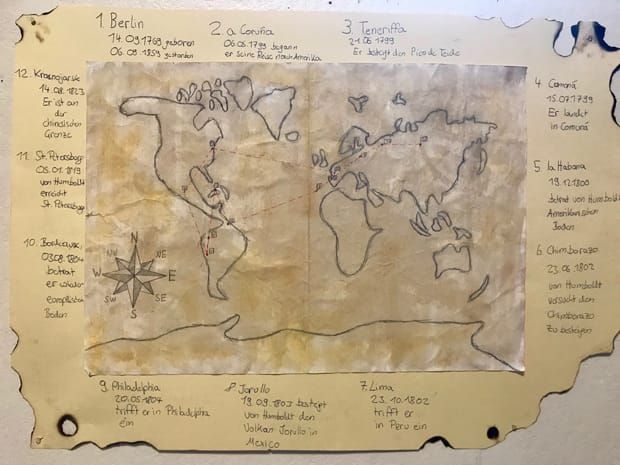 1. Berlin
14.09.1769 geboren
06.05.1859 gestorben
2. a Coruña
06.05.1799 begann
er seine Reise nach Amerika
3. Teneriffa
21.06.1799
Er besteigt den Pico de Teide
4. Comoná
15.07.1799
Er landet
in Comoná
5. la Habana
19.12.1800
betrat von Humboldt
Amerikanischen
Boden
6. Chimborazo
23.06.1802
von Humboldt
versucht den
Chimborazo
zu besteigen
7. Lima
23.10.1802
trifft er
in Peru ein
8. Jorullo
19.09.1803 besteigt
von Humboldt den
Volkan Jorullo in
Mexico
9. Philadelphia
20.05.1804
trifft er in Philadelphia
ein
10. Bordeaux
03.08.1804
betrat
er wieder
europäischen
Boden
11. St. Petersburg
05.01.1819
von Humboldt
erreicht
St. Petersburg
12. Krasnojarsk
14.08.1823
Er ist an
der
chinesischen
Grenze
N
NW
NE
W
E
SW
SE
S